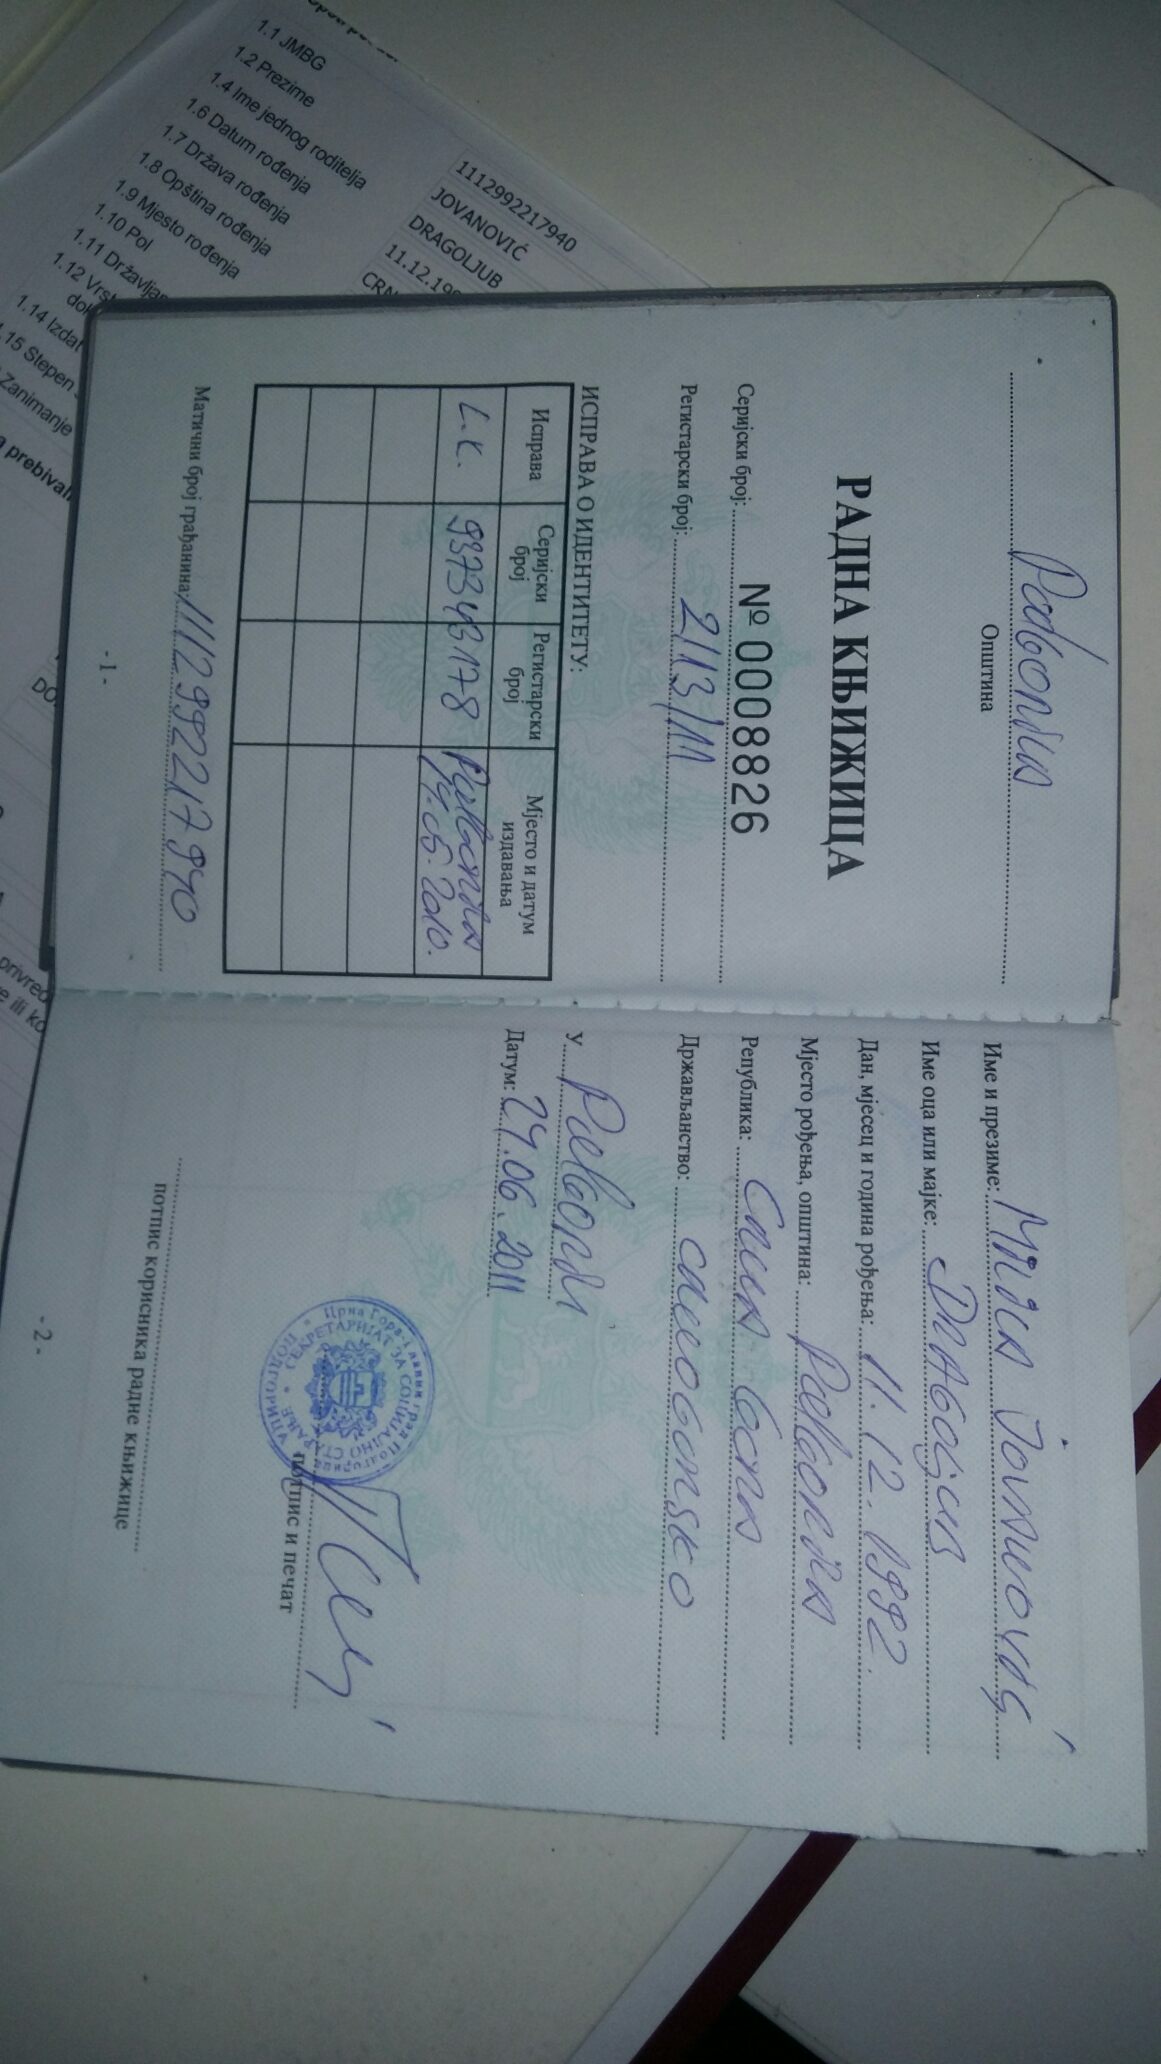 1.1 JMBG
1.2 Prezime
1.4 Ime jednog roditelja
1.6 Datum rođenja
1.7 Država rođenja
1.8 Opština rođenja
1.9 Mjesto rođenja
1.10 Pol
1.11 Državljan
1.12 Vrst
1.14 Izdat
.15 Stepen
Zanimanje
prebival
1112992217940
JOVANOVIĆ
DRAGOLJUB
11.12.199
CRN
DO
privred
e ili ko
Podgorica
Општина
РАДНА КЊИЖИЦА
Серијски број: № 0008826
Регистарски број: 2113/11
ИСПРАВА О ИДЕНТИТЕТУ:
Исправа Серијски број Регистарски број Мјесто и датум издавања
L.K. 937343178 Podgorica 14.05.2010.
Матични број грађанина: 1112992217940
- 1 -
Име и презиме: Milica Jovanović
Име оца или мајке: Dragoljub
Дан, мјесец и година рођења: 11.12.1992.
Мјесто рођења, општина: Podgorica
Република: Crna Gora
Држављанство: crnogorsko
У Podgorici
Датум: 24.06.2011
Црна Гора - Главни град Подгорица
СЕКРЕТАРИЈАТ ЗА СОЦИЈАЛНО СТАРАЊЕ
ПОДГОРИЦА
потпис и печат
потпис корисника радне књижице
- 2 -